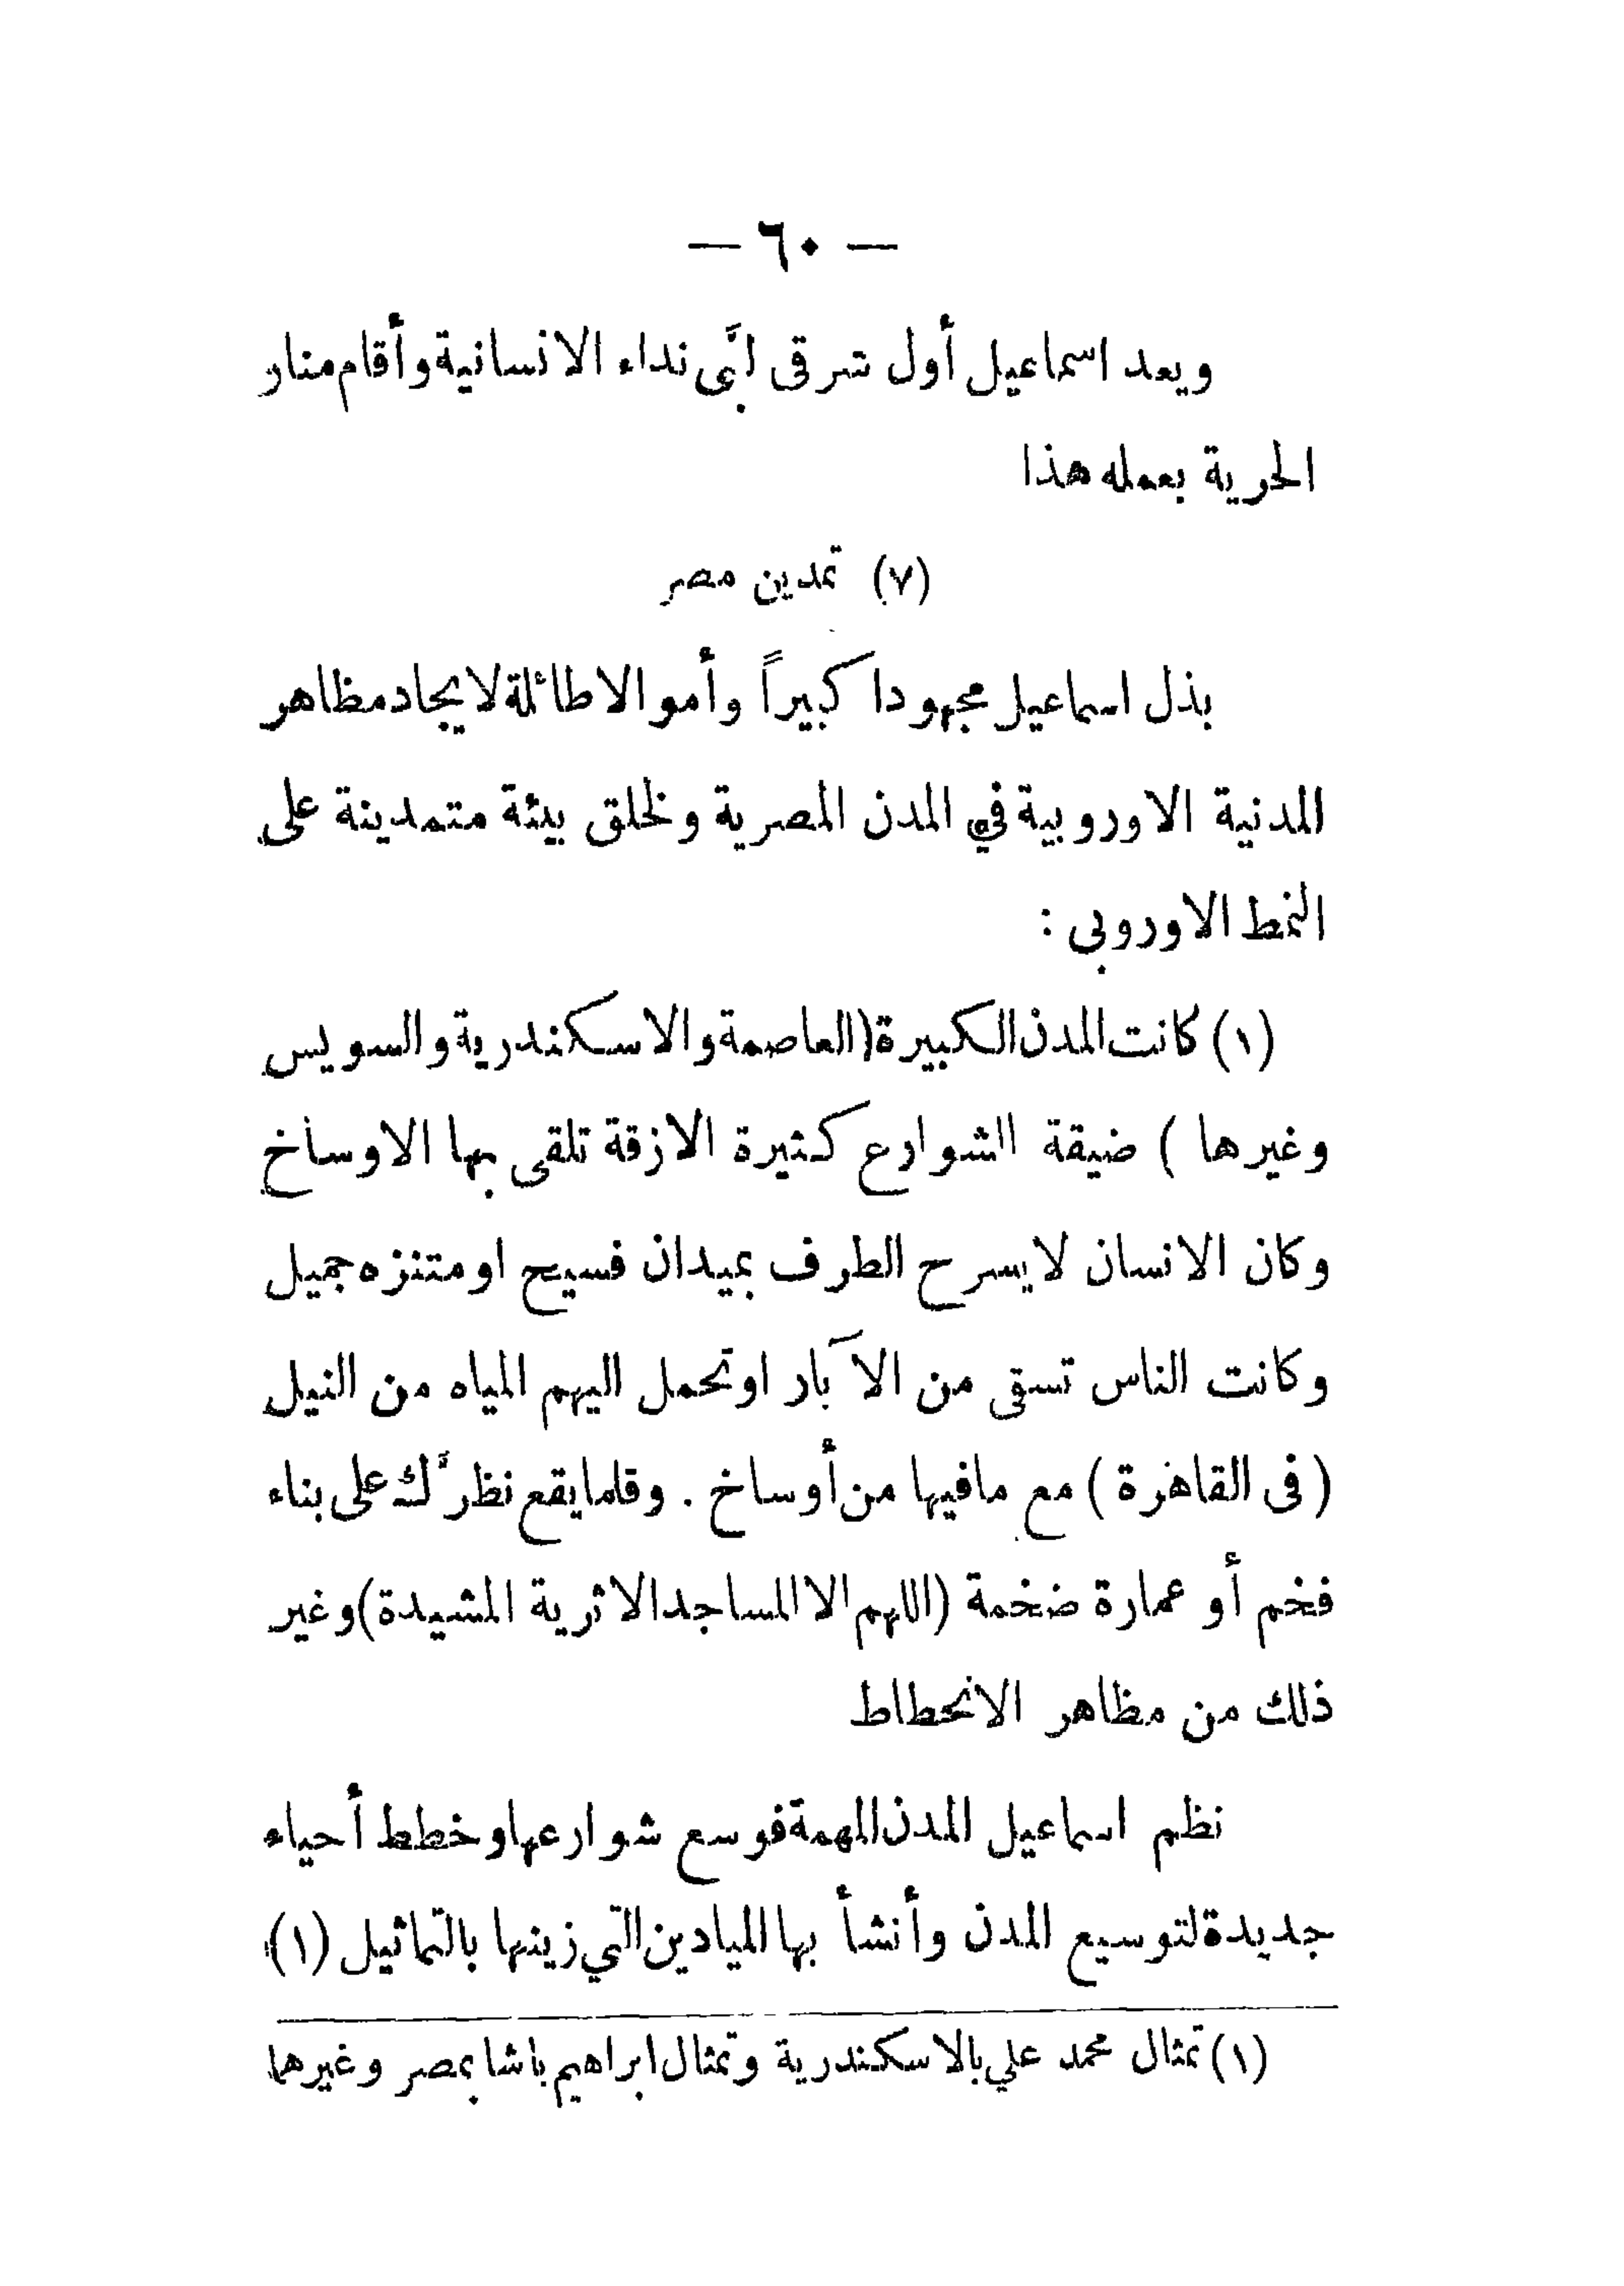 — ٦٠ —
ويعد اسماعيل أول شرقى لبَّى نداء الانسانية وأقام منار
الحرية بعمله هذا
(٧) تمدين مصر
بذل اسماعيل مجهودا كبيراً وأموالا طائلة لايجاد مظاهر
المدنية الاوروبية في المدن المصرية ولخلق بيئة متمدينة على
النمط الاوروبى :
(١) كانت المدن الكبيرة (العاصمة والاسكندرية والسويس
وغيرها ) ضيقة الشوارع كثيرة الازقة تلقى بها الاوساخ
وكان الانسان لايسرح الطرف بميدان فسيح او متنزه جميل
وكانت الناس تسقى من الآبار او تحمل اليهم المياه من النيل
( فى القاهرة ) مع مافيها من أوساخ . وقلما يقع نظرك على بناء
فخم أو عمارة ضخمة (اللهم الا المساجد الاثرية المشيدة) وغير
ذلك من مظاهر الانحطاط
نظم اسماعيل المدن المهمة فوسع شوارعها وخطط أحياء
جديدة لتوسيع المدن وأنشأ بها الميادين التي زينها بالتماثيل (١)
(١) تمثال محمد علي بالاسكندرية وتمثال ابراهيم باشا بمصر وغيرهما